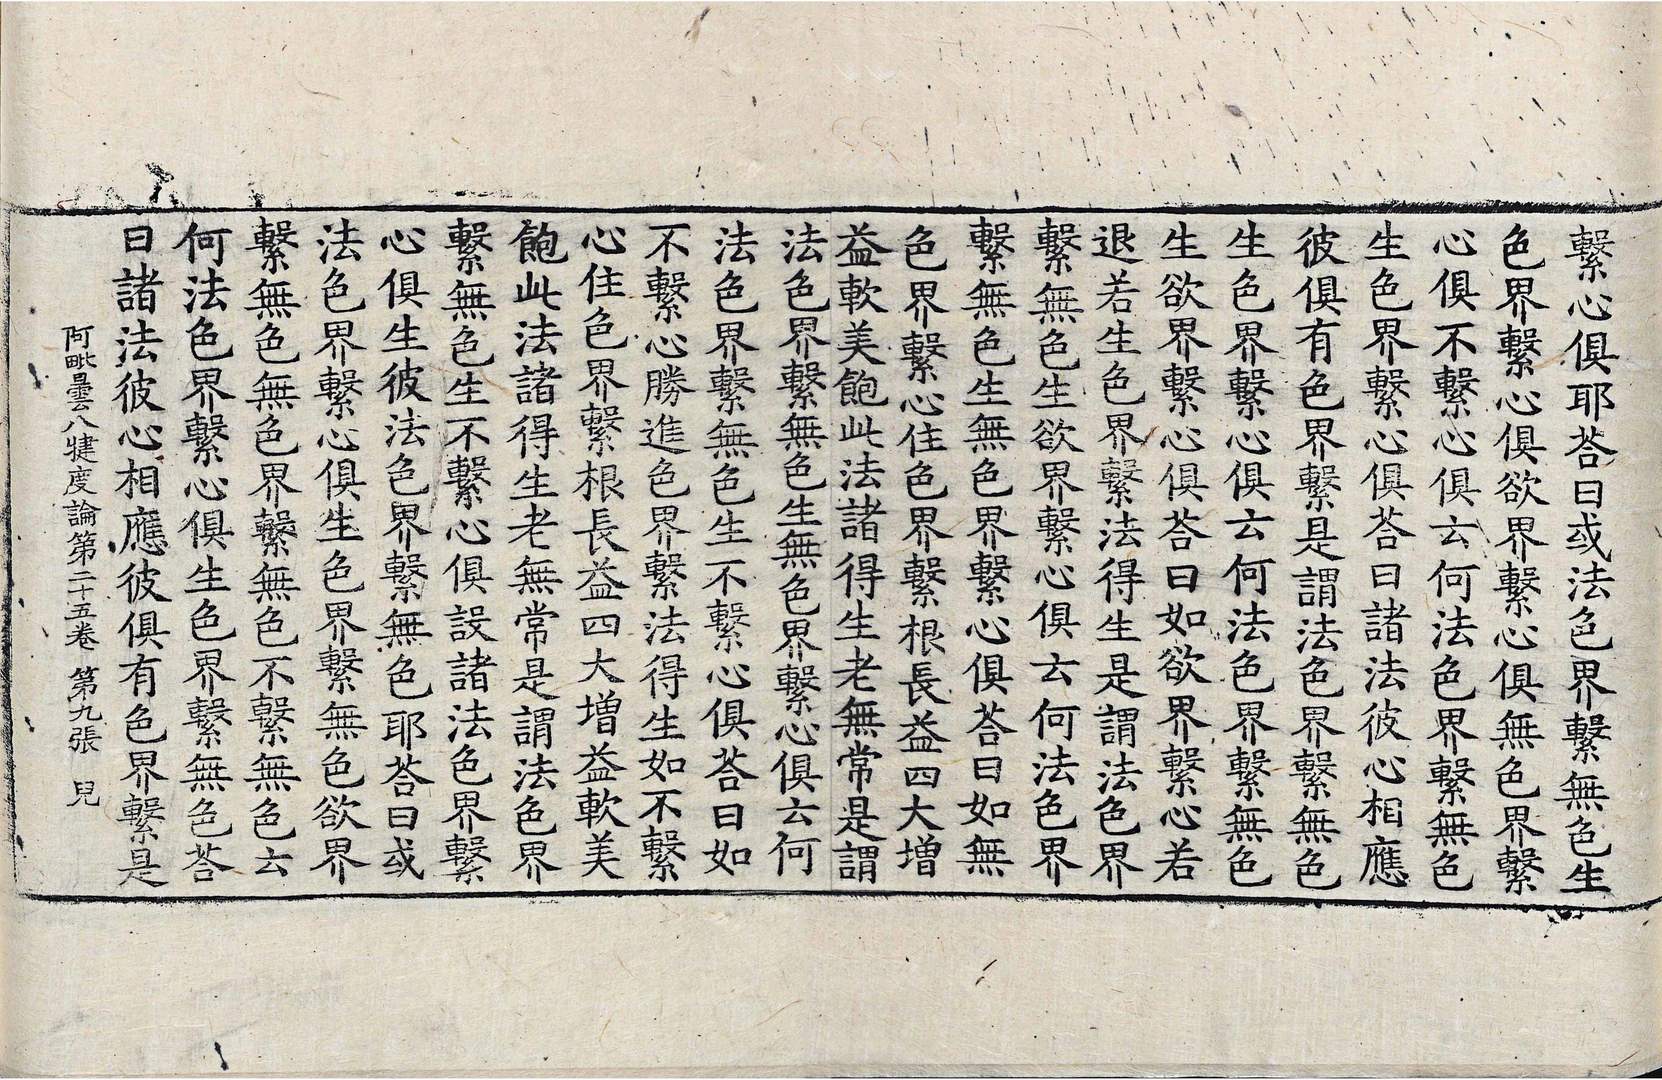 繫心俱耶荅曰或法色界繫無色生
色界繫心俱欲界繫心俱無色界繫
心俱不繫心俱云何法色界繫無色
生色界繫心俱荅曰諸法彼心相應
彼俱有色界繫是謂法色界繫無色
生色界繫心俱云何法色界繫無色
生欲界繫心俱荅曰如欲界繫心若
退若生色界繫法得生是謂法色界
繫無色生欲界繫心俱云何法色界
繫無色生無色界繫心俱荅曰如無
色界繫心住色界繫根長益四大增
益軟美飽此法諸得生老無常是謂
法色界繫無色生無色界繫心俱云何
法色界繫無色生不繫心俱荅曰如
不繫心勝進色界繫法得生如不繫
心住色界繫根長益四大增益軟美
飽此法諸得生老無常是謂法色界
繫無色生不繫心俱設諸法色界繫
心俱生彼法色界繫無色耶荅曰或
法色界繫心俱生色界繫無色欲界
繫無色無色界繫無色不繫無色云
何法色界繫心俱生色界繫無色荅
曰諸法彼心相應彼俱有色界繫是
阿毗曇八犍度論第二十五卷 第九張 兒